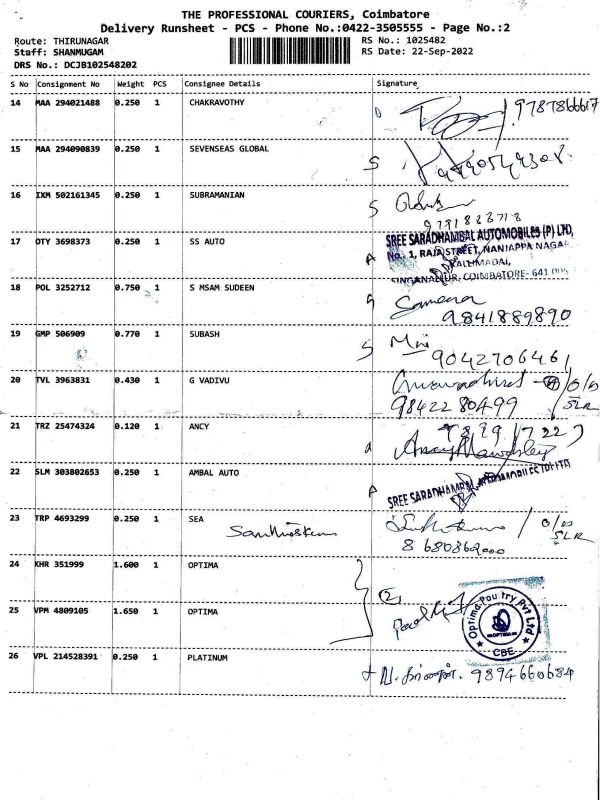 THE PROFESSIONAL COURIERS, Coimbatore
Delivery Runsheet - PCS - Phone No.:0422-3505555 - Page No.:2
Route: THIRUNAGAR RS No.: 1025482
Staff: SHANMUGAM RS Date: 22-Sep-2022
DRS No.: DCJB102548202
S No Consignment No Weight PCS Consignee Details Signature
14 MAA 294021488 0.250 1 CHAKRAVOTHY
15 MAA 294090839 0.250 1 SEVENSEAS GLOBAL S
16 IXM 502161345 0.250 1 SUBRAMANIAN S
17 OTY 3698373 0.250 1 SS AUTO A
SREE SARADHAMBAL AUTOMOBILES (P) LTD,
No. 1, RAJA STREET, NANJAPPA NAGAR
KALLIMADAI,
SINGANALLUR, COIMBATORE- 641 005
18 POL 3252712 0.750 1 S MSAM SUDEEN
9841889890
19 GMP 506909 0.770 1 SUBASH S
9042706461
20 TVL 3963831 0.430 1 G VADIVU
9842280499 SLR
21 TRZ 25474324 0.120 1 ANCY
22 SLM 303802653 0.250 1 AMBAL AUTO
SREE SARADHAMBAL
23 TRP 4693299 0.250 1 SEA
8680862000 SLR
24 KHR 351999 1.600 1 OPTIMA
25 VPM 4809105 1.650 1 OPTIMA
Optima Poultry Pvt Ltd
CBE
26 VPL 214528391 0.250 1 PLATINUM
9894660684